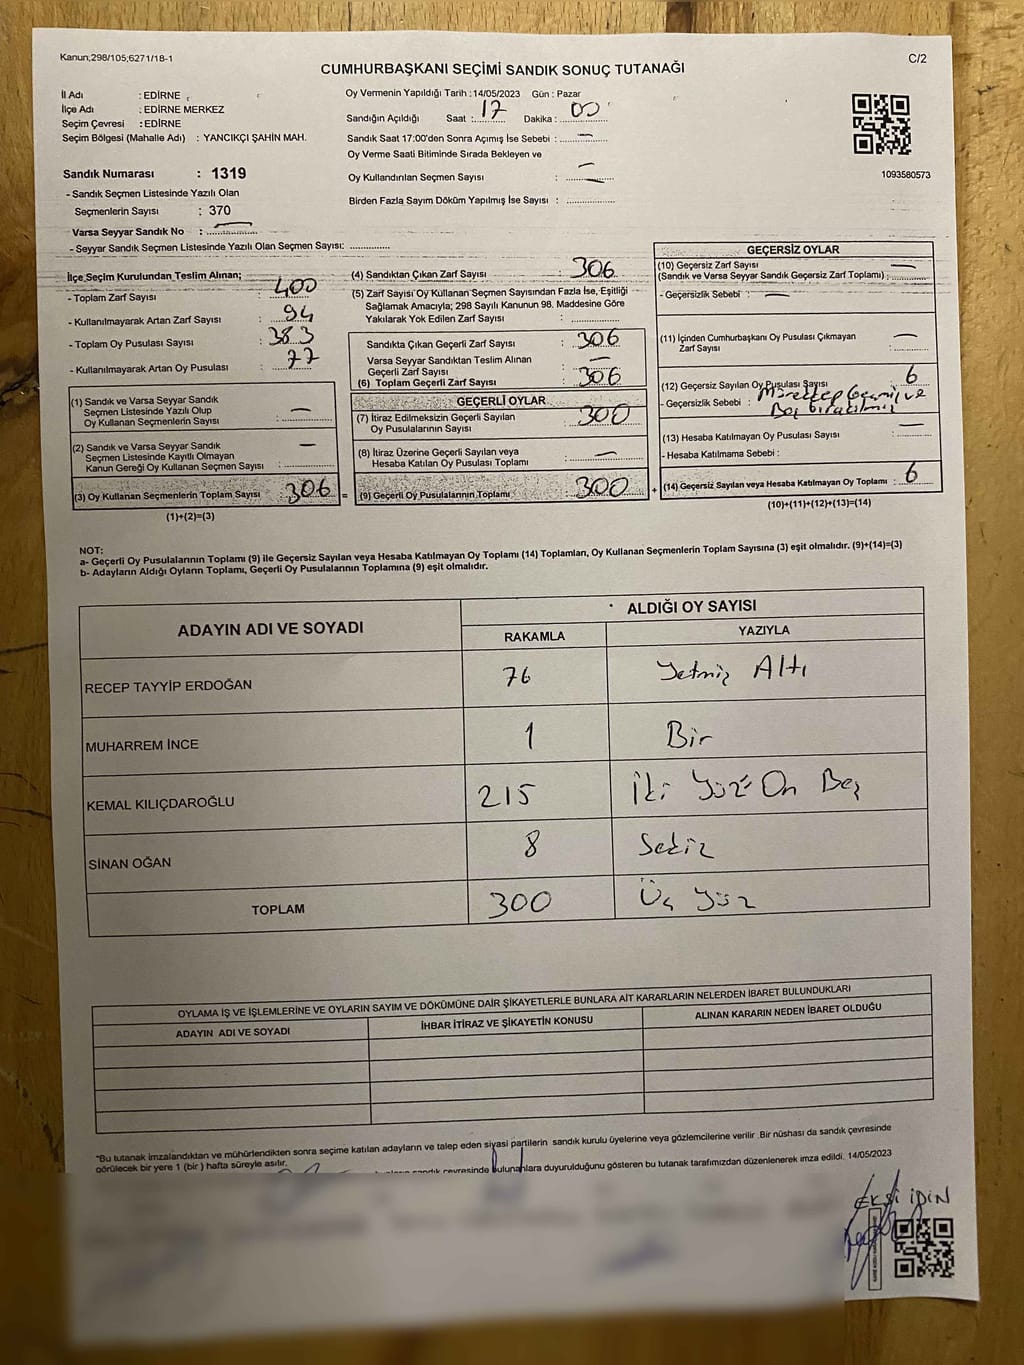 Kanun;298/105;6271/18-1
C/2
CUMHURBAŞKANI SEÇİMİ SANDIK SONUÇ TUTANAĞI
İl Adı : EDİRNE
İlçe Adı : EDİRNE MERKEZ
Seçim Çevresi : EDİRNE
Seçim Bölgesi (Mahalle Adı) : YANCIKÇI ŞAHİN MAH.
Oy Vermenin Yapıldığı Tarih : 14/05/2023 Gün : Pazar
Sandığın Açıldığı Saat : 17 Dakika : 00
Sandık Saat 17:00'den Sonra Açımış İse Sebebi : —
Oy Verme Saati Bitiminde Sırada Bekleyen ve
Oy Kullandırılan Seçmen Sayısı : —
Birden Fazla Sayım Döküm Yapılmış İse Sayısı :
1093580573
Sandık Numarası : 1319
- Sandık Seçmen Listesinde Yazılı Olan
Seçmenlerin Sayısı : 370
Varsa Seyyar Sandık No : —
- Seyyar Sandık Seçmen Listesinde Yazılı Olan Seçmen Sayısı:
İlçe Seçim Kurulundan Teslim Alınan;
- Toplam Zarf Sayısı : 400
- Kullanılmayarak Artan Zarf Sayısı : 94
- Toplam Oy Pusulası Sayısı : 383
- Kullanılmayarak Artan Oy Pusulası : 77
(1) Sandık ve Varsa Seyyar Sandık
Seçmen Listesinde Yazılı Olup
Oy Kullanan Seçmenlerin Sayısı : —
(2) Sandık ve Varsa Seyyar Sandık
Seçmen Listesinde Kayıtlı Olmayan
Kanun Gereği Oy Kullanan Seçmen Sayısı : —
(3) Oy Kullanan Seçmenlerin Toplam Sayısı : 306 =
(1)+(2)=(3)
(4) Sandıktan Çıkan Zarf Sayısı : 306
(5) Zarf Sayısı Oy Kullanan Seçmen Sayısından Fazla İse, Eşitliği
Sağlamak Amacıyla; 298 Sayılı Kanunun 98. Maddesine Göre
Yakılarak Yok Edilen Zarf Sayısı :
Sandıkta Çıkan Geçerli Zarf Sayısı : 306
Varsa Seyyar Sandıktan Teslim Alınan
Geçerli Zarf Sayısı : —
(6) Toplam Geçerli Zarf Sayısı : 306
GEÇERLİ OYLAR
(7) İtiraz Edilmeksizin Geçerli Sayılan
Oy Pusulalarının Sayısı : 300
(8) İtiraz Üzerine Geçerli Sayılan veya
Hesaba Katılan Oy Pusulası Toplamı : —
(9) Geçerli Oy Pusulalarının Toplamı : 300 +
GEÇERSİZ OYLAR
(10) Geçersiz Zarf Sayısı
(Sandık ve Varsa Seyyar Sandık Geçersiz Zarf Toplamı) : —
- Geçersizlik Sebebi : —
(11) İçinden Cumhurbaşkanı Oy Pusulası Çıkmayan
Zarf Sayısı : —
(12) Geçersiz Sayılan Oy Pusulası Sayısı : 6
- Geçersizlik Sebebi : ve
Boş bırakılmış
(13) Hesaba Katılmayan Oy Pusulası Sayısı : —
- Hesaba Katılmama Sebebi :
(14) Geçersiz Sayılan veya Hesaba Katılmayan Oy Toplamı : 6
(10)+(11)+(12)+(13)=(14)
NOT:
a- Geçerli Oy Pusulalarının Toplamı (9) ile Geçersiz Sayılan veya Hesaba Katılmayan Oy Toplamı (14) Toplamları, Oy Kullanan Seçmenlerin Toplam Sayısına (3) eşit olmalıdır. (9)+(14)=(3)
b- Adayların Aldığı Oyların Toplamı, Geçerli Oy Pusulalarının Toplamına (9) eşit olmalıdır.
ADAYIN ADI VE SOYADI
ALDIĞI OY SAYISI
RAKAMLA YAZIYLA
RECEP TAYYİP ERDOĞAN 76 Yetmiş Altı
MUHARREM İNCE 1 Bir
KEMAL KILIÇDAROĞLU 215 İki Yüz On Beş
SİNAN OĞAN 8 Sekiz
TOPLAM 300 Üç Yüz
OYLAMA İŞ VE İŞLEMLERİNE VE OYLARIN SAYIM VE DÖKÜMÜNE DAİR ŞİKAYETLERLE BUNLARA AİT KARARLARIN NELERDEN İBARET BULUNDUKLARI
ADAYIN ADI VE SOYADI İHBAR İTİRAZ VE ŞİKAYETİN KONUSU ALINAN KARARIN NEDEN İBARET OLDUĞU
*Bu tutanak imzalandıktan ve mühürlendikten sonra seçime katılan adayların ve talep eden siyasi partilerin sandık kurulu üyelerine veya gözlemcilerine verilir .Bir nüshası da sandık çevresinde
görülecek bir yere 1 (bir ) hafta süreyle asılır.
sandık çevresinde bulunanlara duyurulduğunu gösteren bu tutanak tarafımızdan düzenlenerek imza edildi. 14/05/2023